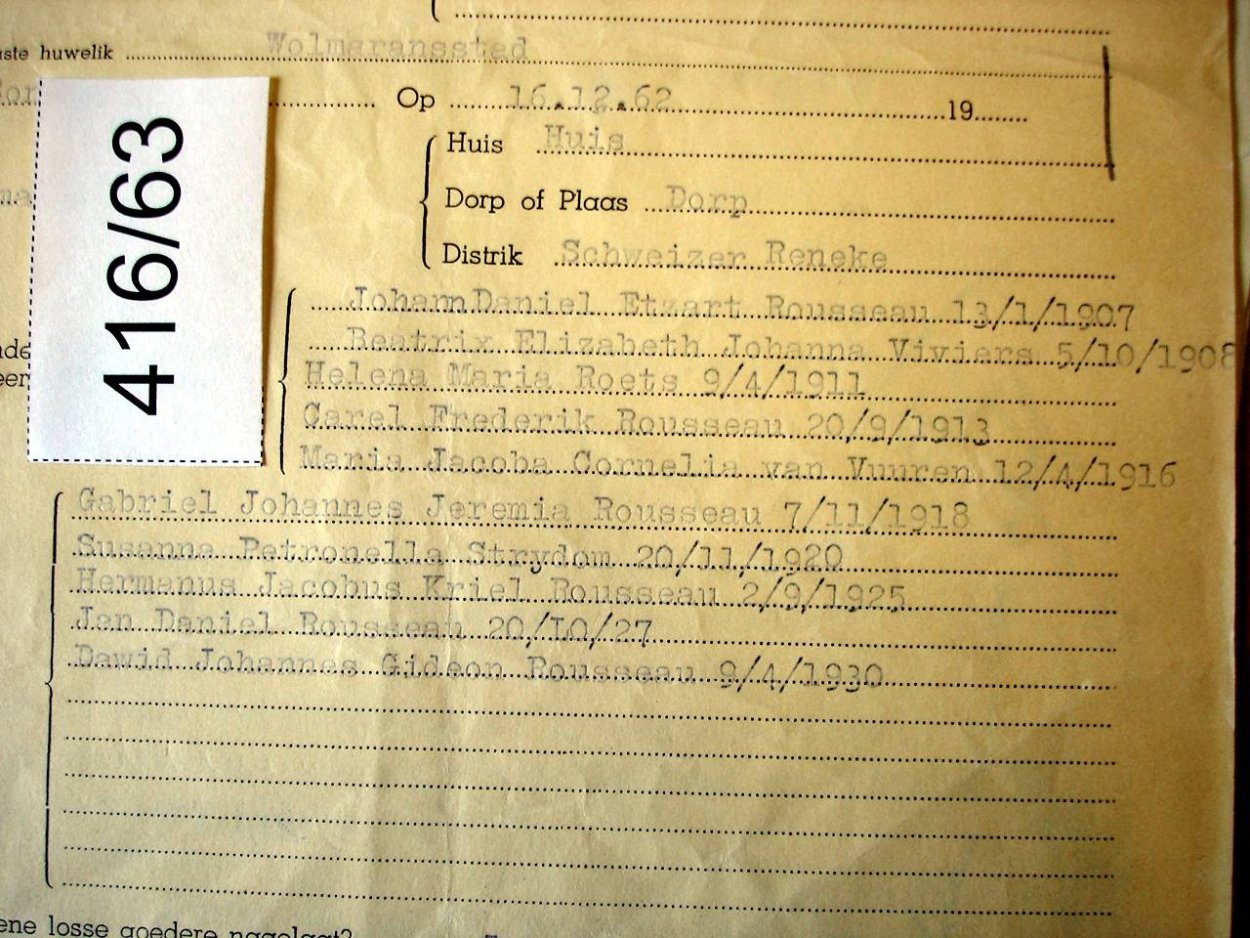 ste huwelik Wolmaransstad
Op 16.12.62 19
416/63
Huis Huis
Dorp of Plaas Dorp
Distrik Schweizer Reneke
Johann Daniel Etzart Rousseau 13/1/1907
Beatrix Elizabeth Johanna Viviers 5/10/1908
Helena Maria Roets 9/4/1911
Carel Frederik Rousseau 20/9/1913
Maria Jacoba Cornelia van Vuuren 12/4/1916
Gabriel Johannes Jeremia Rousseau 7/11/1918
Susanna Petronella Strydom 20/11/1920
Hermanus Jacobus Kriel Rousseau 2/9/1925
Jan Daniel Rousseau 20/IO/27
Dawid Johannes Gideon Rousseau 9/4/1930
ene losse goedere nagelaat?